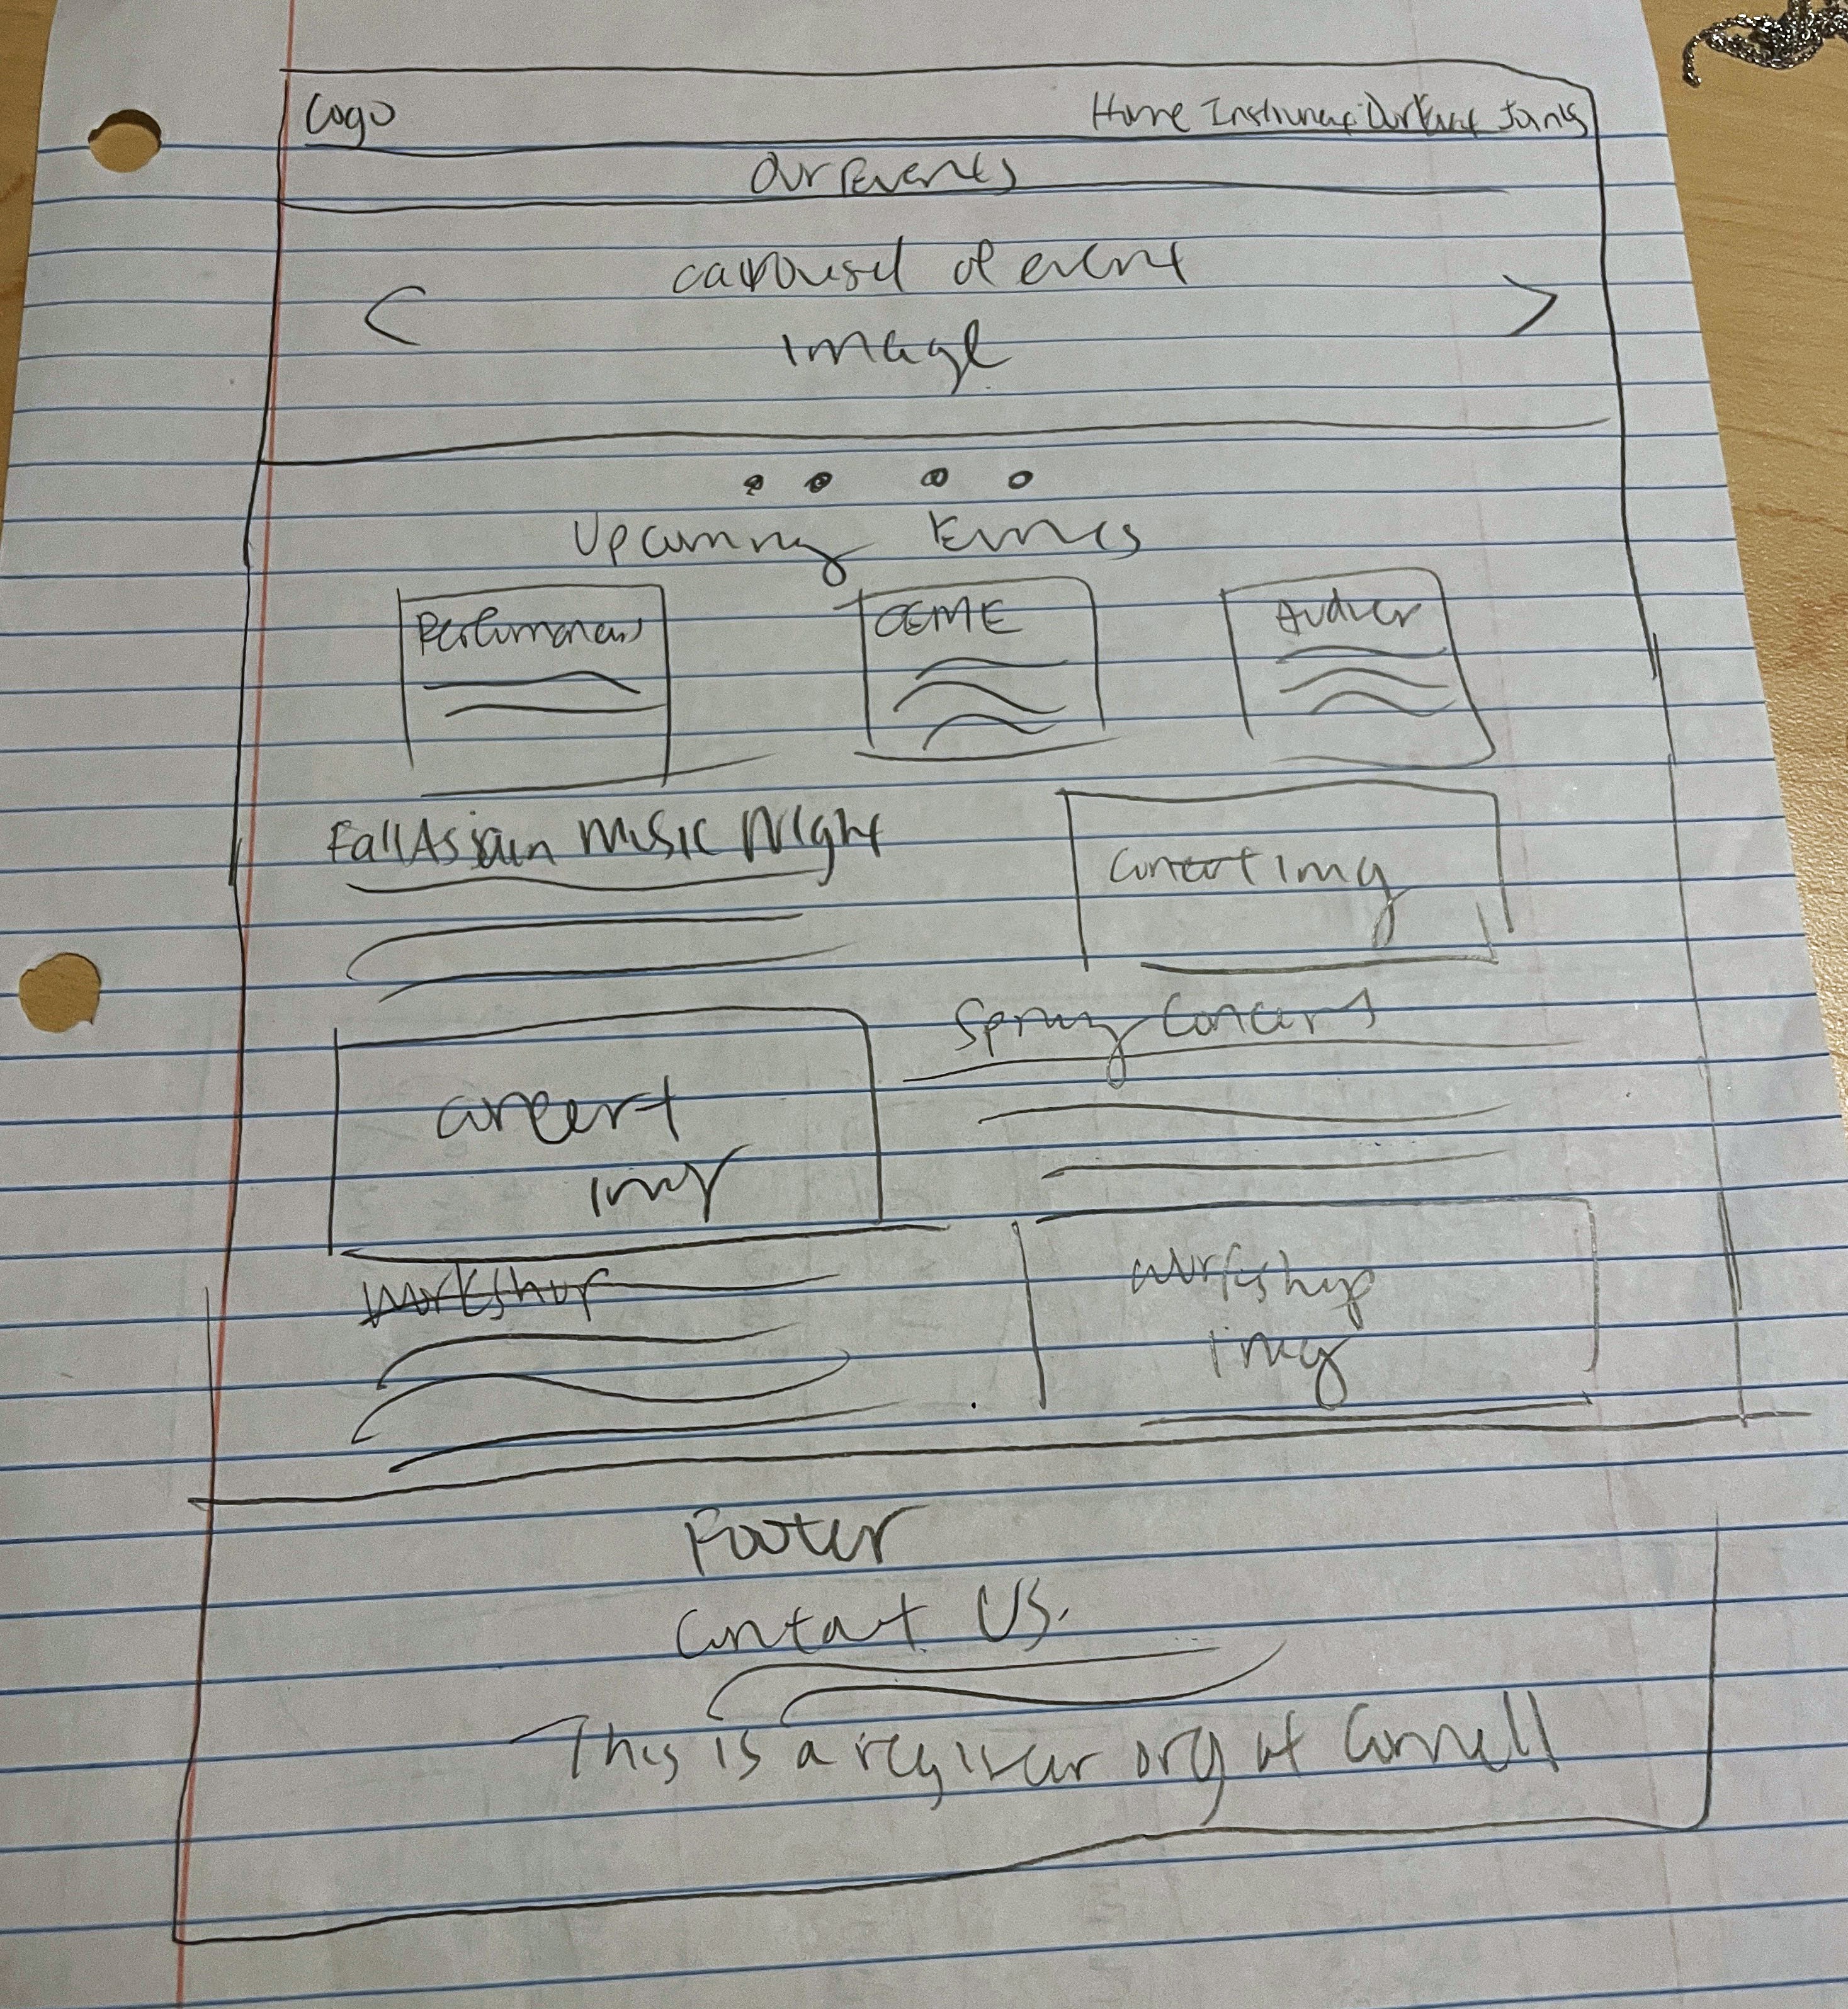 Logo
Home Instrument Our Event Join Us
Our Events
carousel of event
image
Upcoming Events
Performances
CEME
Fall Asian Music Night
concert img
Spring Concert
concert
img
workshop
workshop
img
Footer
Contact Us.
This is a register org at Cornell